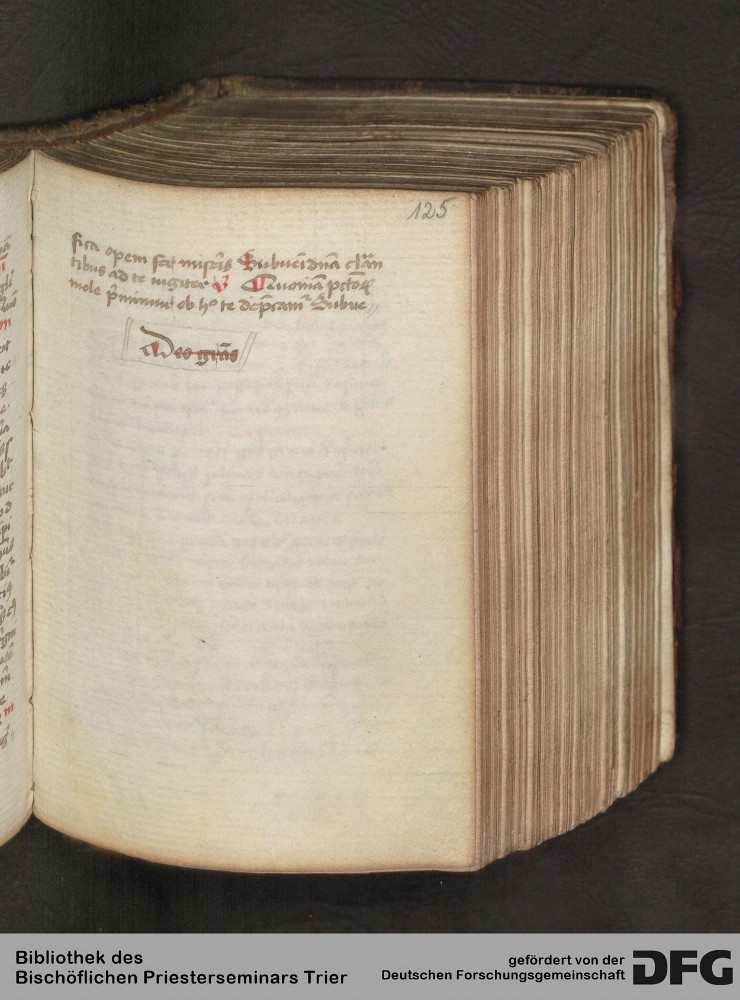 125
fica opem fer mis̄is Subueī dn̄a clān
tibus ad te iugiter V̓ Quoniā pctōꝝ
mole p̄mimur ob hͦ te dep̄camͬ Subue
Deo gr̄as
Bibliothek des
Bischöflichen Priesterseminars Trier
gefördert von der
Deutschen Forschungsgemeinschaft
DFG